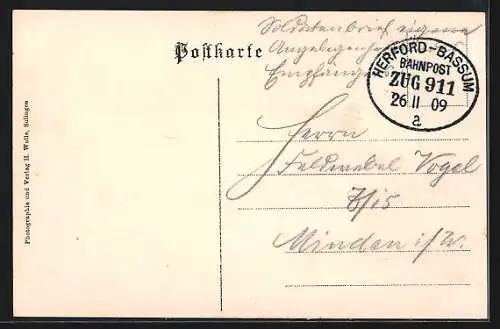 Soldatenbrief eigene
Postkarte
Angelegenheit
Empfängers
HERFORD-BASSUM
BAHNPOST
ZUG 911
26 11 09
a
Herrn
Feldwebel Vogel
/15
Minden i/W.
Photographie und Verlag H. Welle, Sulingen